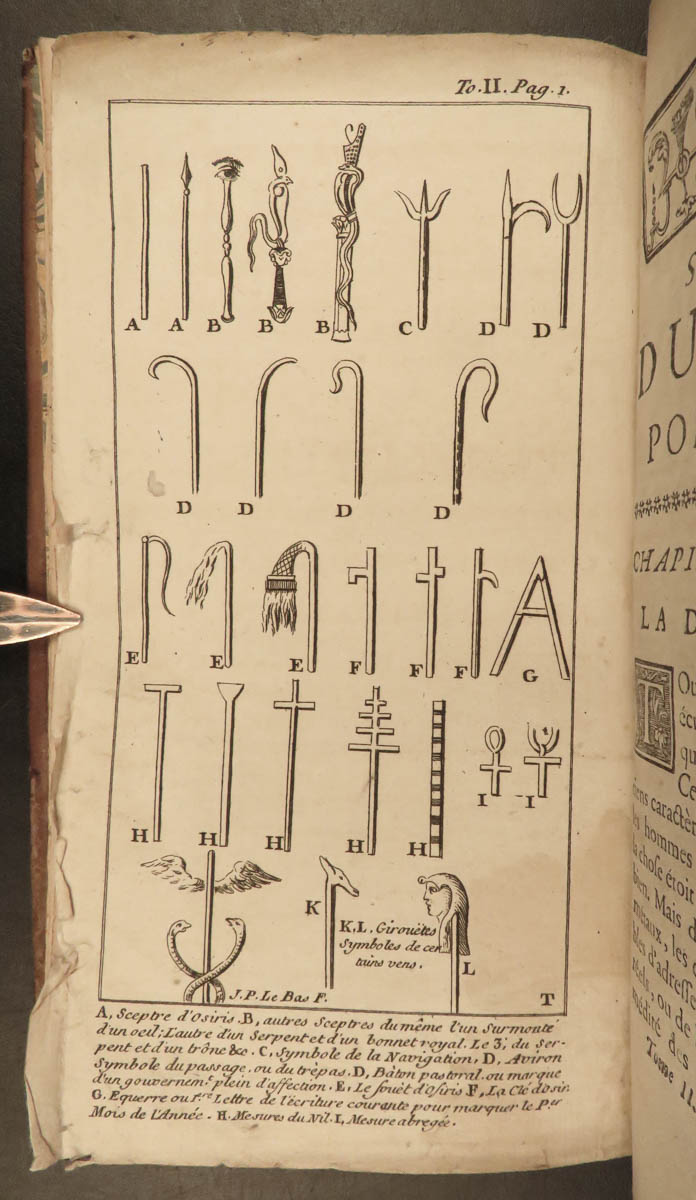 To. II. Pag. 1.
A A B B B C D D
D D D D
E E E F F F G
H H H H H I I
K
K, L. Girouëtes
Symboles de cer
tains vens.
L
J. P. Le Bas F.
T
A, Sceptre d'Osiris. B, autres Sceptres du même l'un Surmonté
d'un oeil; L'autre d'un Serpent et d'un bonnet royal. Le 3; du Ser-
pent et d'un trône &c. C, Symbole de la Navigation, D, Aviron
Symbole du passage, ou du trépas. D, Bâton pastoral. ou marque
d'un gouvernem.t plein d'affection. E, Le fouët d'Osiris F, La Clé d'osir.
G. Equerre ou 1.re Lettre de l'écriture courante pour marquer le P.er
Mois de l'Année. H. Mesures du Nil. I, Mesure abregée.
S
DU
PO
CHAPI
LA D
T Ou
écu
qu
Ce
ciens caractèr
les hommes
la chose étoit
bien. Mais d
les d'adresse
Tome II.